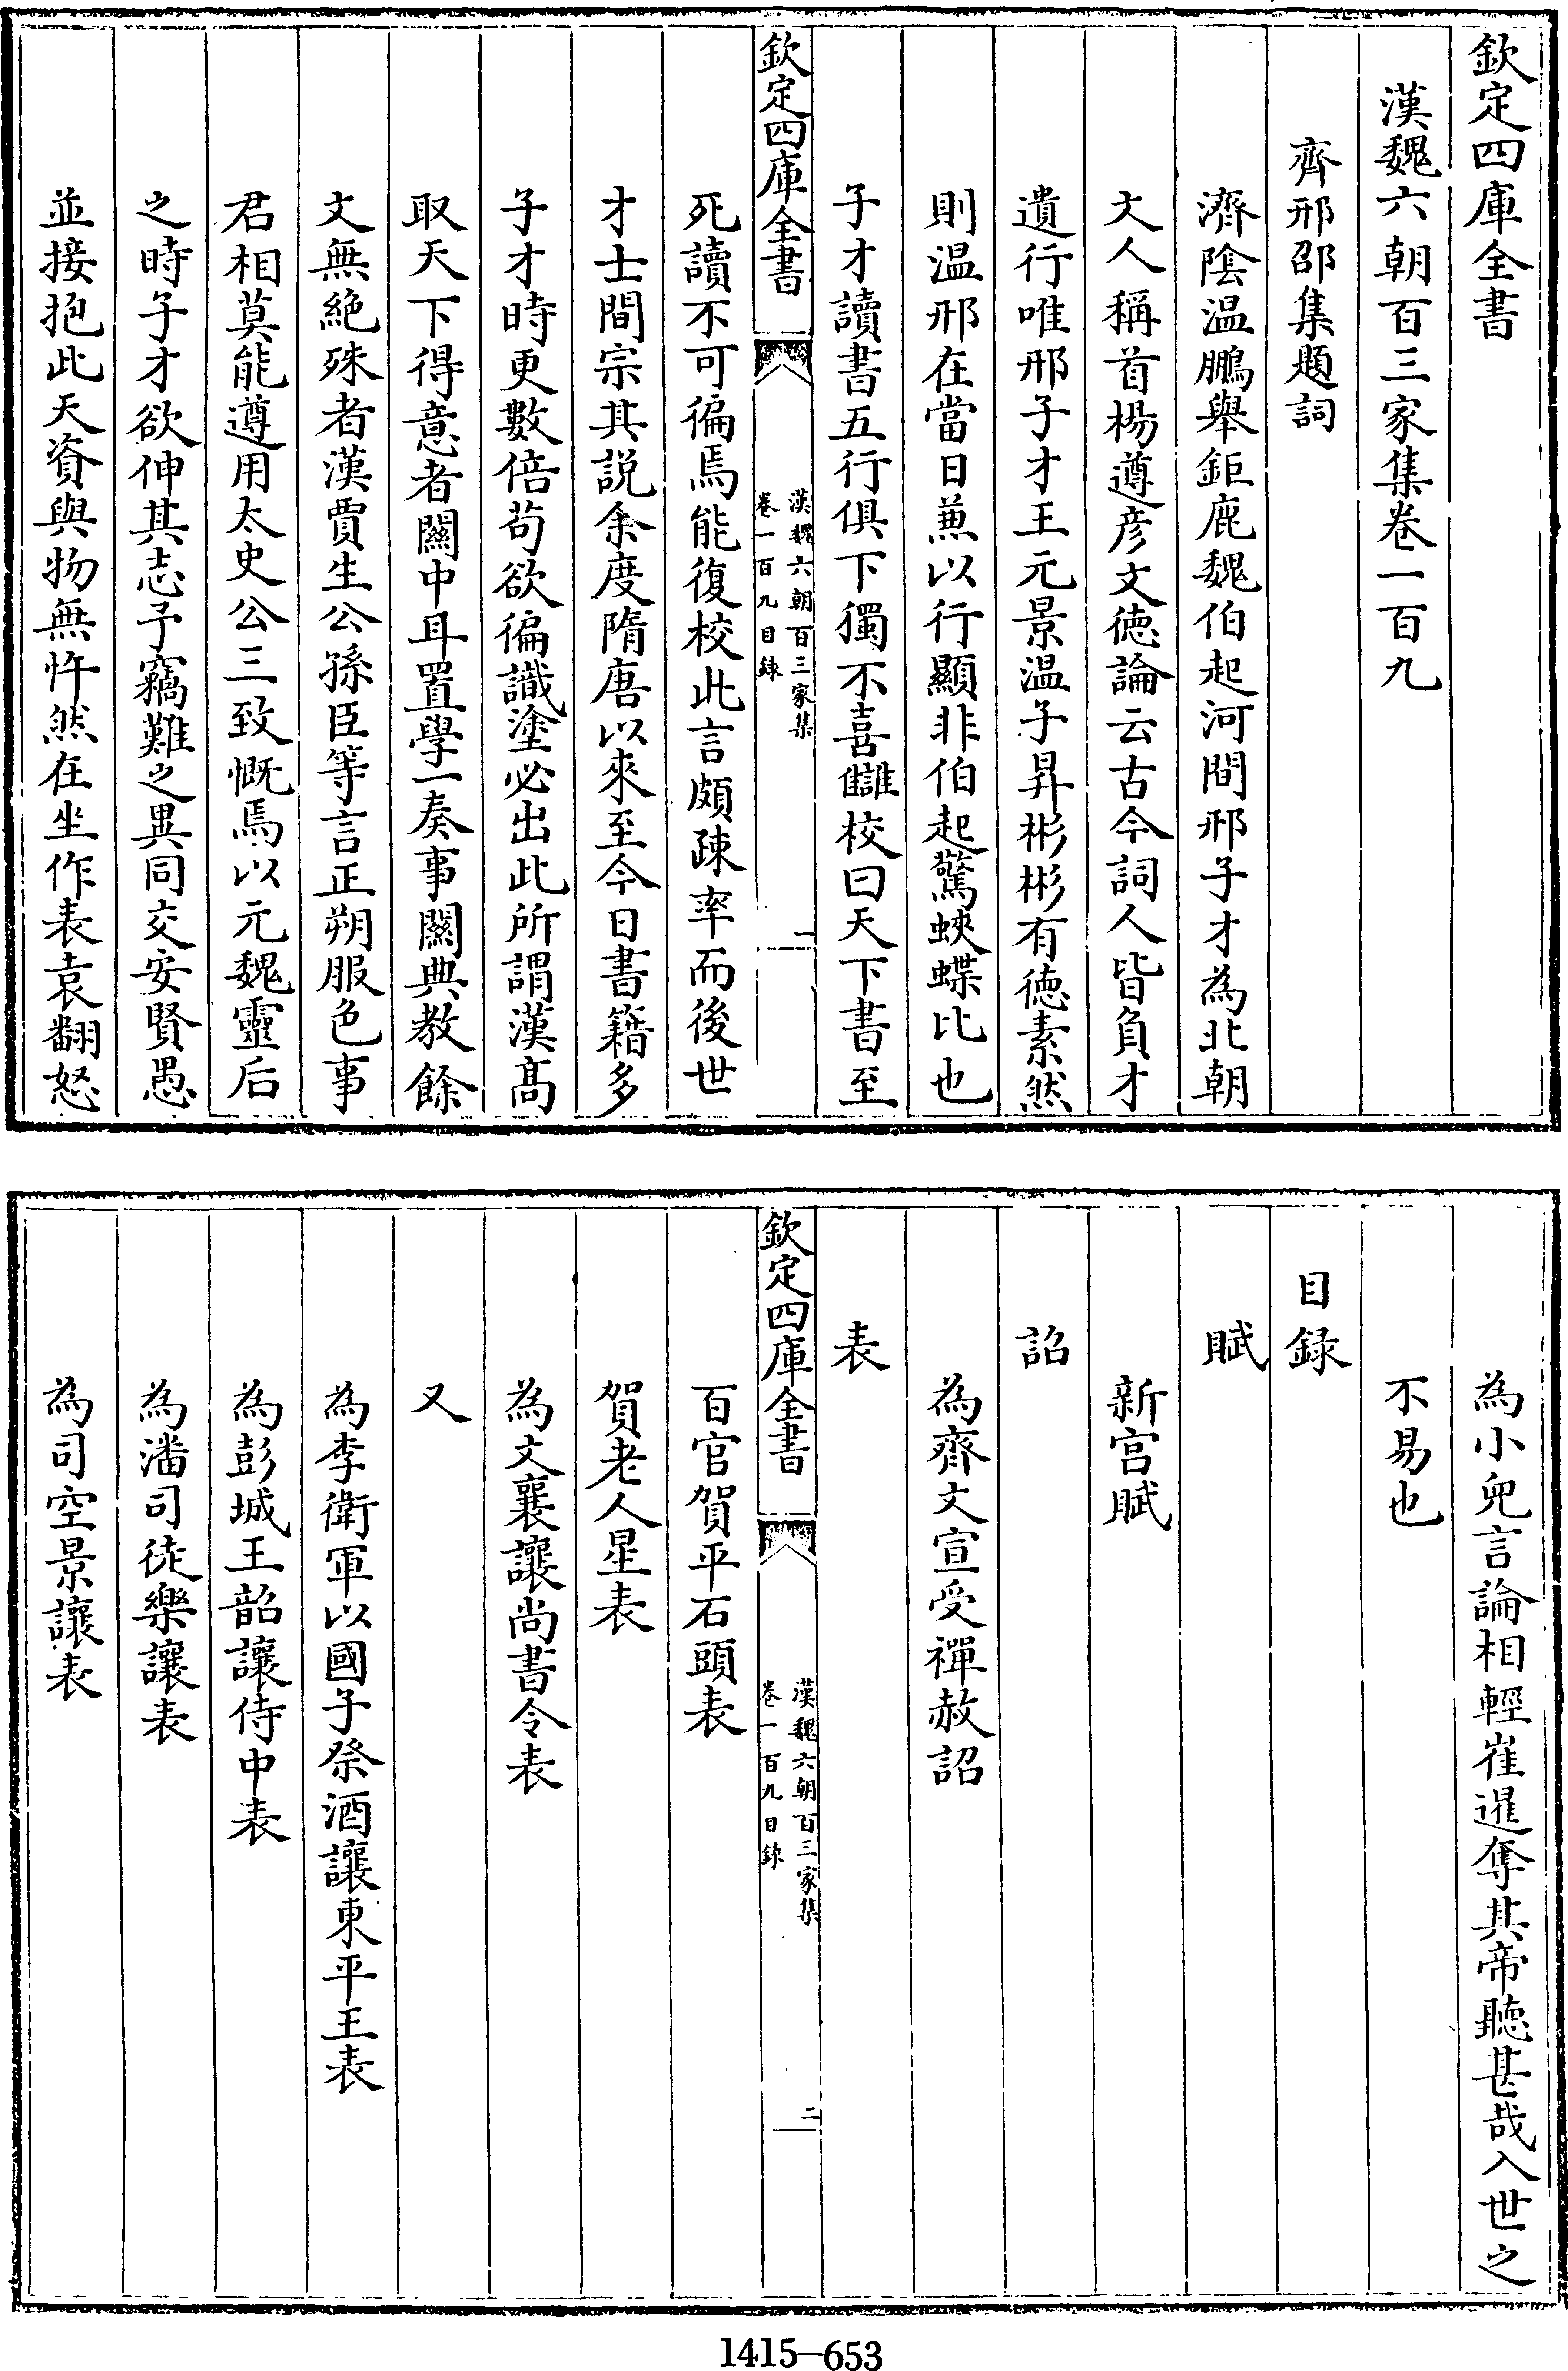 欽定四庫全書
漢魏六朝百三家集卷一百九
齊邢邵集題詞
濟陰温鵬舉鉅鹿魏伯起河間邢子才為北朝
文人稱首楊遵彦文徳論云古今詞人皆負才
遺行唯邢子才王元景温子昇彬彬有徳素然
則温邢在當日兼以行顯非伯起驚蛺蝶比也
子才讀書五行俱下獨不喜讎校曰天下書至
欽定四庫全書
漢魏六朝百三家集
卷一百九目録
一
死讀不可徧焉能復校此言頗疎率而後世
才士間宗其説余度隋唐以來至今日書籍多
子才時更數倍茍欲徧識塗必出此所謂漢髙
取天下得意者闗中耳置學一奏事闗典教餘
文無絶殊者漢賈生公孫臣等言正朔服色事
君相莫能遵用太史公三致慨焉以元魏靈后
之時子才欲伸其志予竊難之異同交安賢愚
並接抱此天資與物無忤然在坐作表袁翻怒
為小兒言論相輕崔暹奪其帝聽甚哉入世之
不易也
目録
賦
新宫賦
詔
為齊文宣受禪赦詔
表
欽定四庫全書
漢魏六朝百三家集
卷一百九目録
二
百官賀平石頭表
賀老人星表
為文襄讓尚書令表
又
為李衛軍以國子祭酒讓東平王表
為彭城王韶讓侍中表
為潘司徒樂讓表
為司空景讓表
1415-653